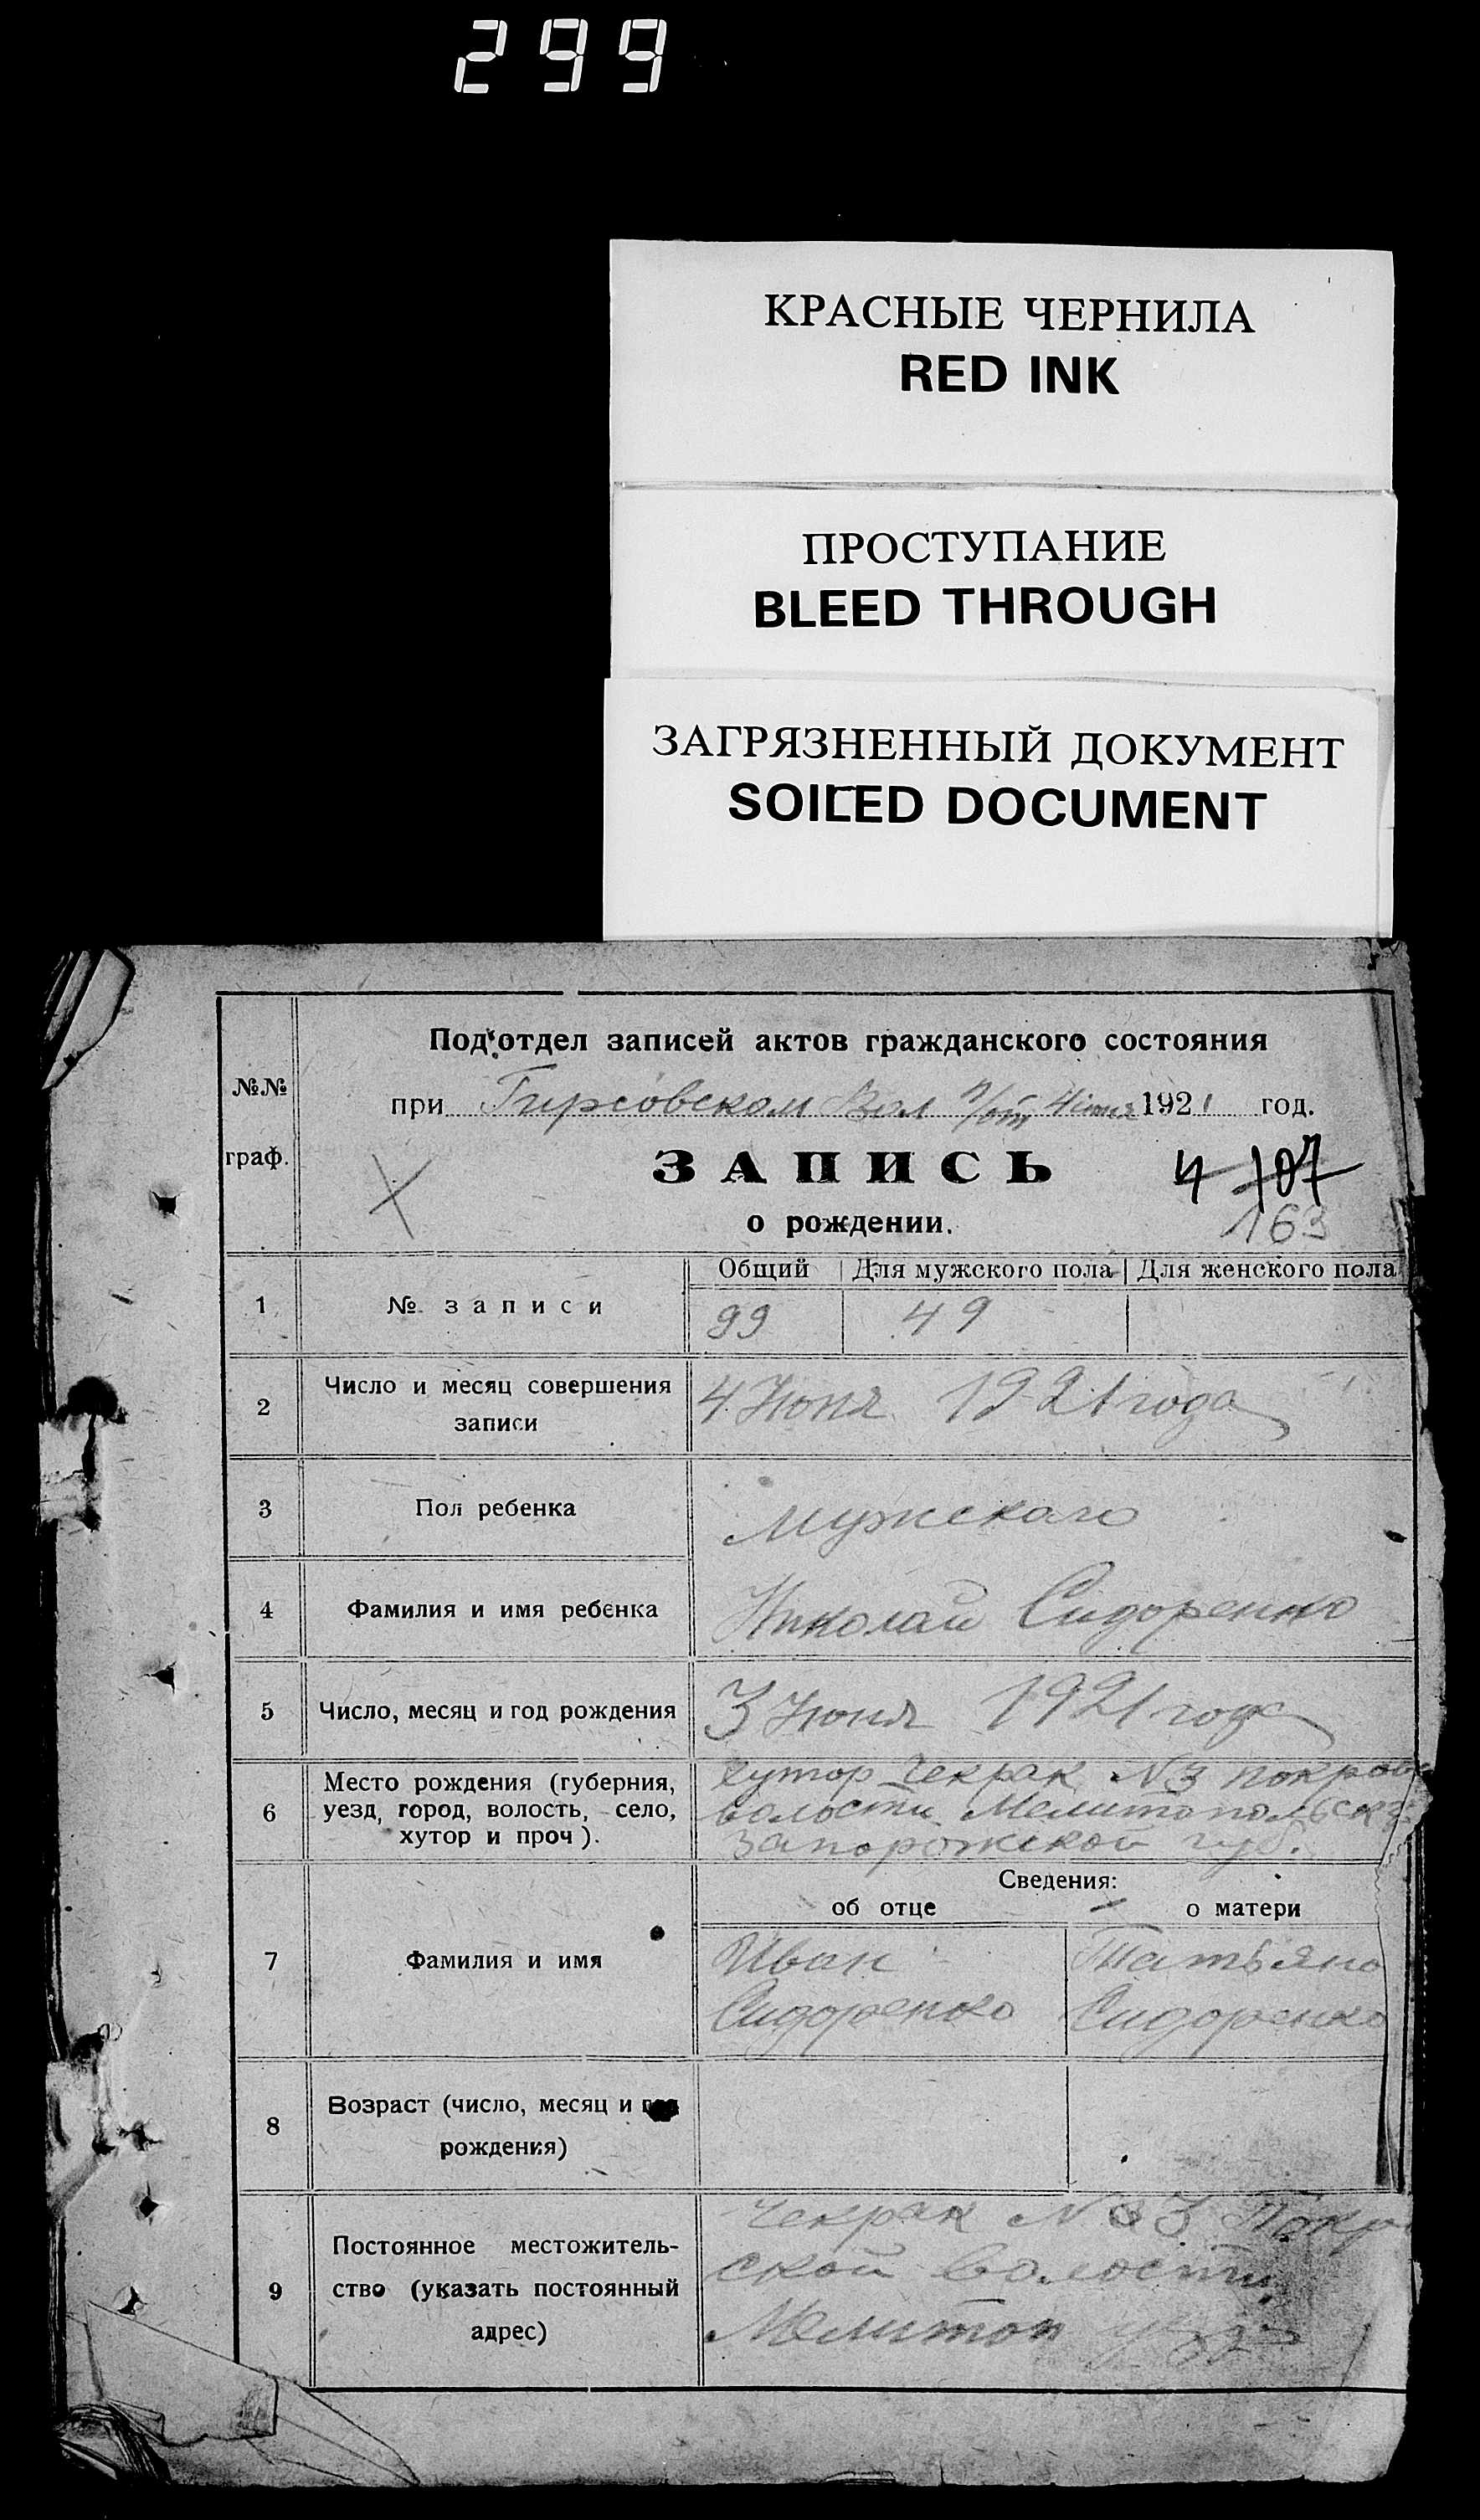 299
КРАСНЫЕ ЧЕРНИЛА
RED INK
ПРОСТУПАНИЕ
BLEED THROUGH
ЗАГРЯЗНЕННЫЙ ДОКУМЕНТ
SOILED DOCUMENT
№№ граф.
Подотдел записей актов гражданского состояния
при Гирсовском Вол п/от 4 июня 1921 год.
ЗАПИСЬ
4 107
о рождении.
163
Общий Для мужского пола Для женского пола
1 № записи 99 49
2 Число и месяц совершения
записи
4 Июня 1921 года
3 Пол ребенка мужскаго
4 Фамилия и имя ребенка Николай Сидоренко
5 Число, месяц и год рождения 3 Июня 1921 года
6 Место рождения (губерния,
уезд, город, волость, село,
хутор и проч).
хутор Чекрак N3 покров
волости Мелитопольск
Запорожской губ.
Сведения:
об отце о матери
7 Фамилия и имя
Иван Татьяна
Сидоренко Сидоренко
8 Возраст (число, месяц и год
рождения)
9 Постоянное местожитель-
ство (указать постоянный
адрес)
Чекрак N 3 Покр
ской волости
Мелитоп